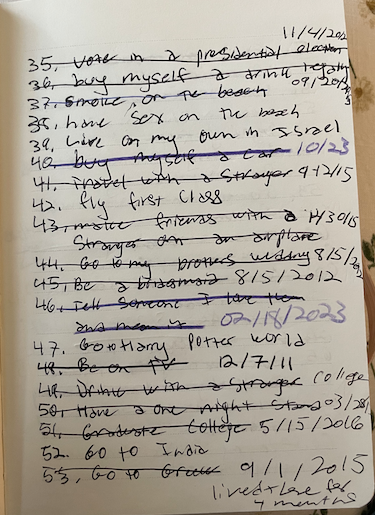 11/4/2012
35. Vote in a presidential election
36. buy myself a drink legally
09/2012
37. Smoke on the beach
38. have sex on the beach
39. Live on my own in Israel
40. buy myself a car 10/23
41. Travel with a Stranger 9-12/15
42. fly first class
43. make friends with a 11/30/15
Stranger on an airplane
44. Go to my brothers wedding 8/5/2012
45. Be a bridesmaid 8/5/2012
46. Tell Someone I love them
and mean it 02/18/2023
47. Go to Harry Potter world
48. Be on TV 12/7/11
49. Drink with a Stranger College
50. Have a one night Stand
51. Graduate College 5/15/2016
52. Go to India
53. Go to Greece 9/1/2015
lived there for
4 months